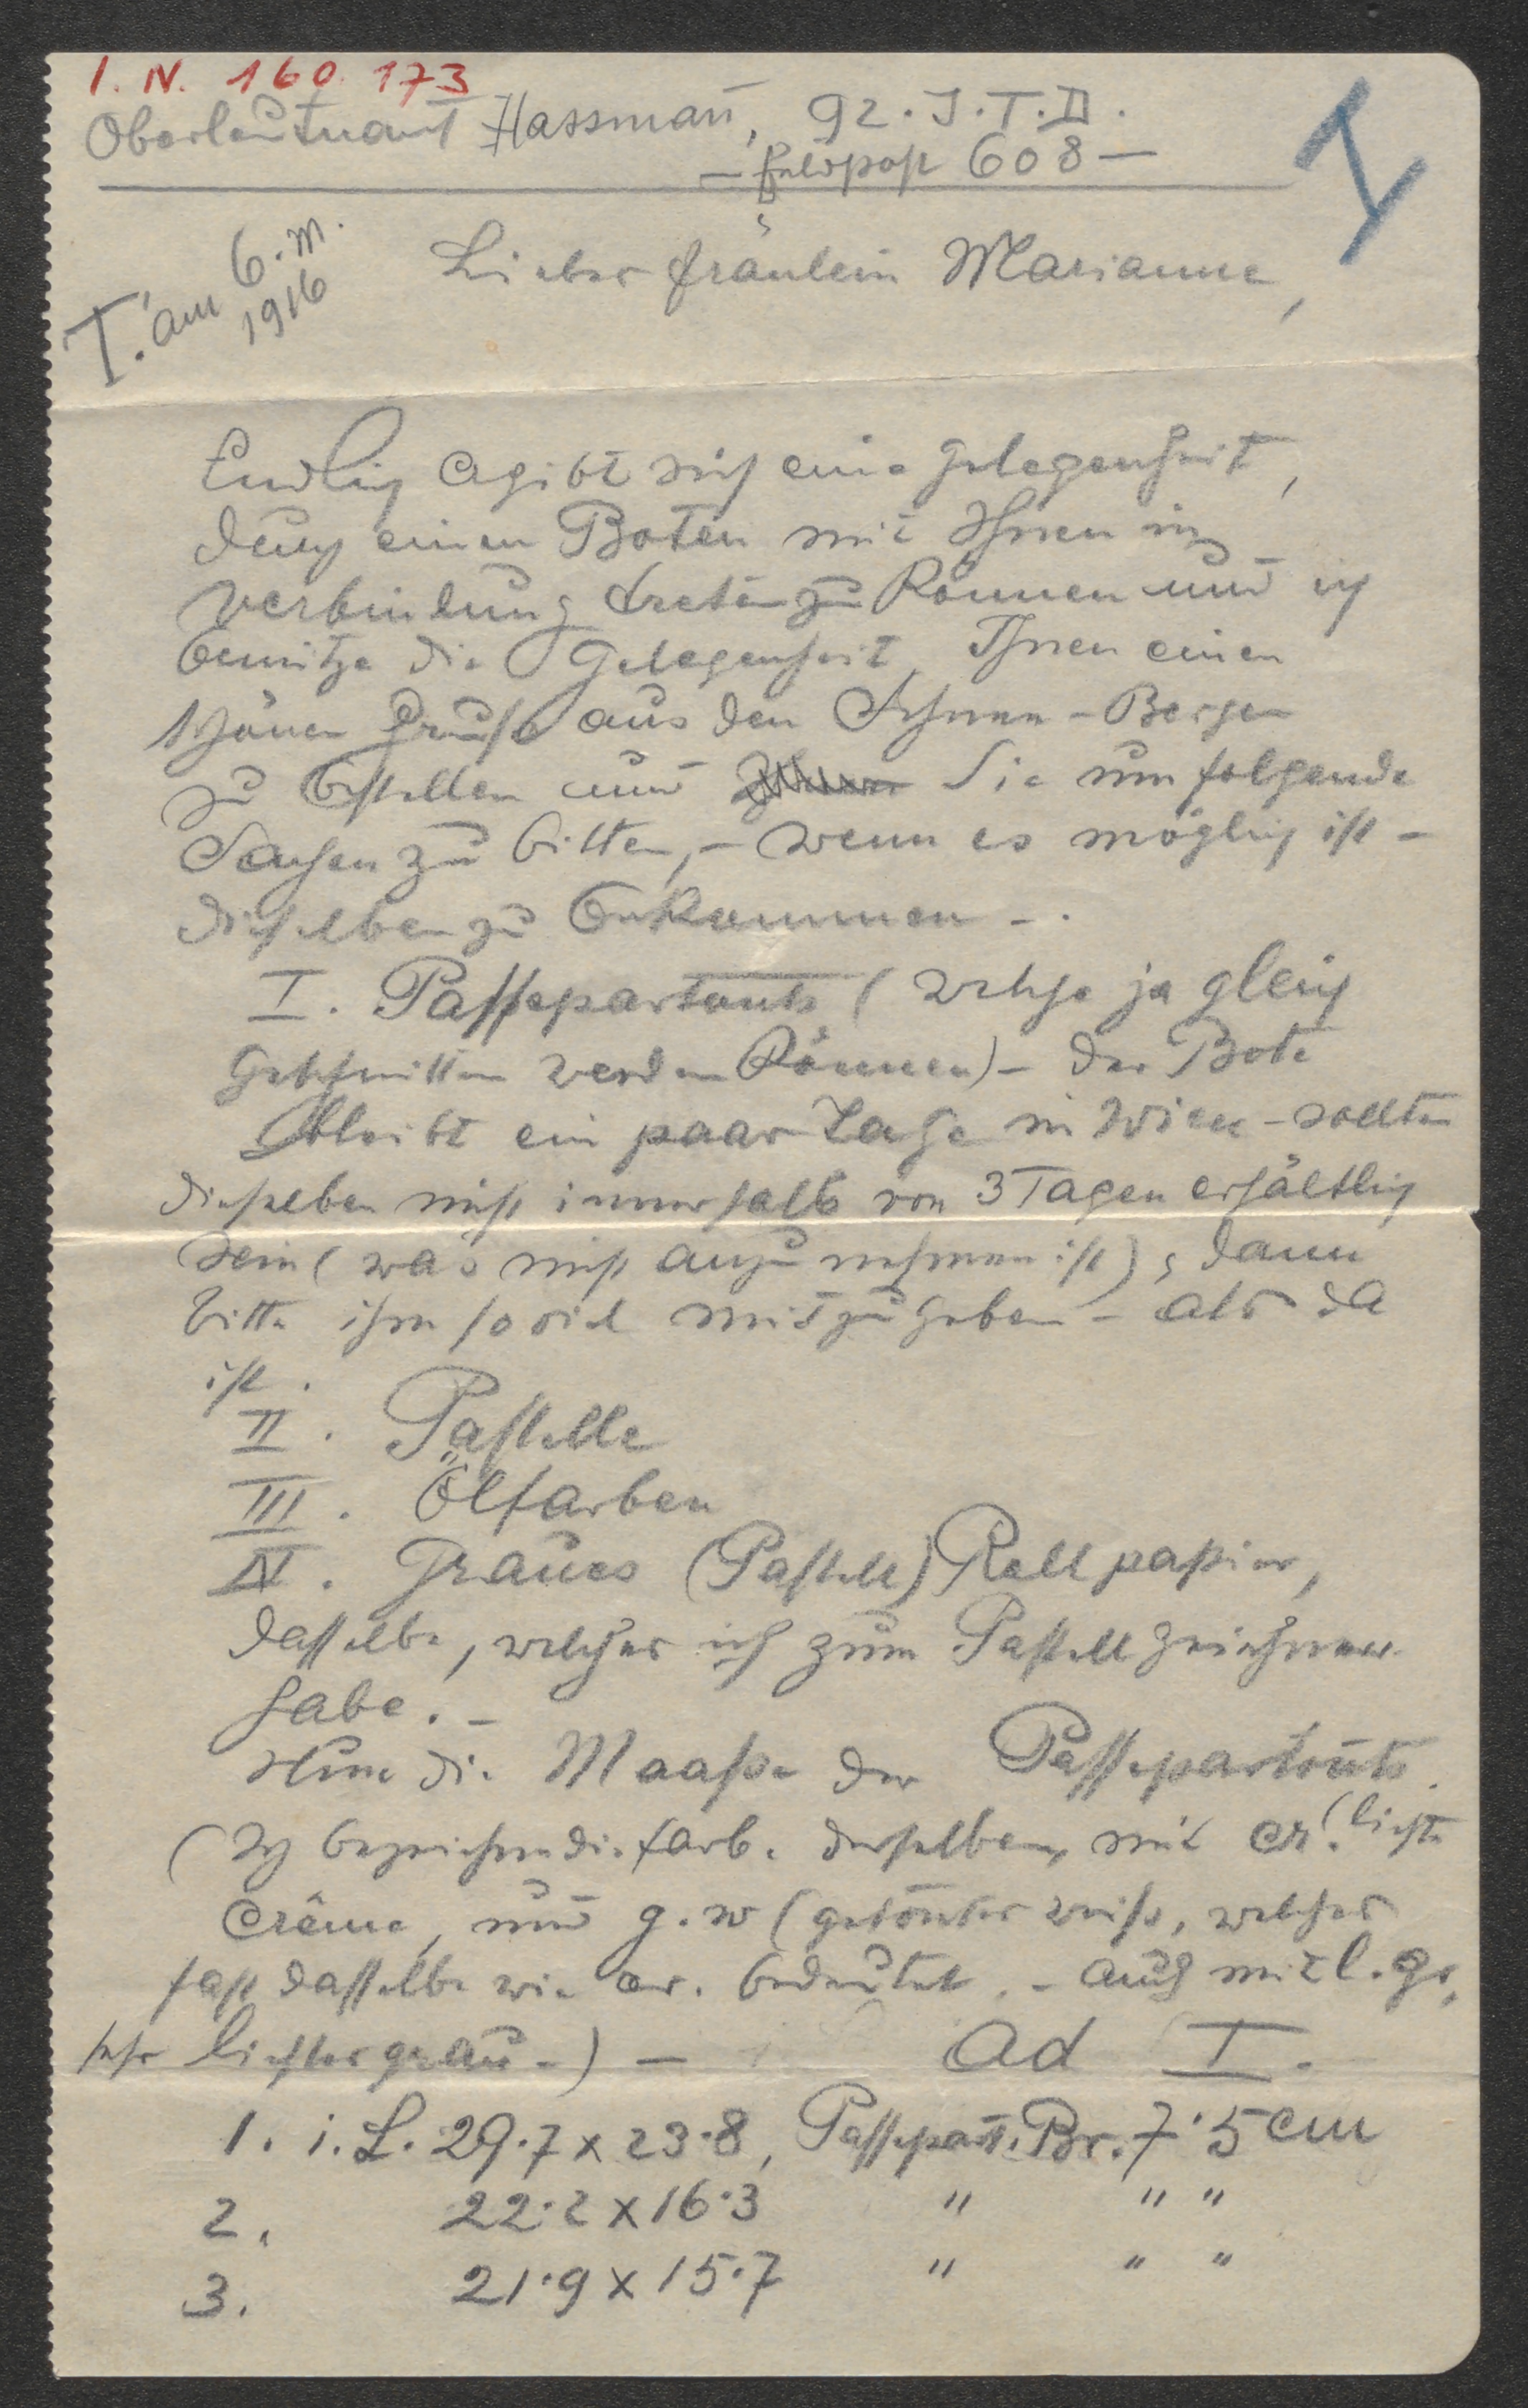 I. N. 160.173
Oberleutnant Hassmann, 92. I.T.D.
— Feldpost 608 —
I
I. am 6. M.
1916
Liebes Fräulein Marianne,
Endlich ergibt sich eine Gelegenheit,
durch einen Boten mit Ihnen in
Verbindung treten zu können und ich
benütze die Gelegenheit, Ihnen einen
schönen Gruß aus den Schnee-Bergen
zu bestellen und Sie um folgende
Sachen zu bitten, – wenn es möglich ist –
dieselben zu bekommen –.
I. Passepartouts (welche ja gleich
geschnitten werden können) – der Bote
bleibt ein paar Tage in Wien – sollten
dieselben nicht innerhalb von 3 Tagen erhältlich
sein (was nicht anzunehmen ist), dann
bitte ihm soviel mitzugeben – als da
ist.
II. Pastelle
III. Ölfarben
IV. Graues (Pastell) Rollpapier,
dasselbe, welches ich zum Pastellzeichnen
habe. –
Nun die Maaße der Passepartouts.
(Ich bezeichne die Farbe derselben mit cr. (lichte
Crême, und g.w (getöntes weiß, welches
fast dasselbe wie cr. bedeutet. – auch mit l. gr.
sehr lichtes grau –) – Ad I.
1. i. L. 29·7 x 23·8, Passepart. Br. 7·5 cm
2. 22·2 x 16·3 " " "
3. 21·9 x 15·7 " " "